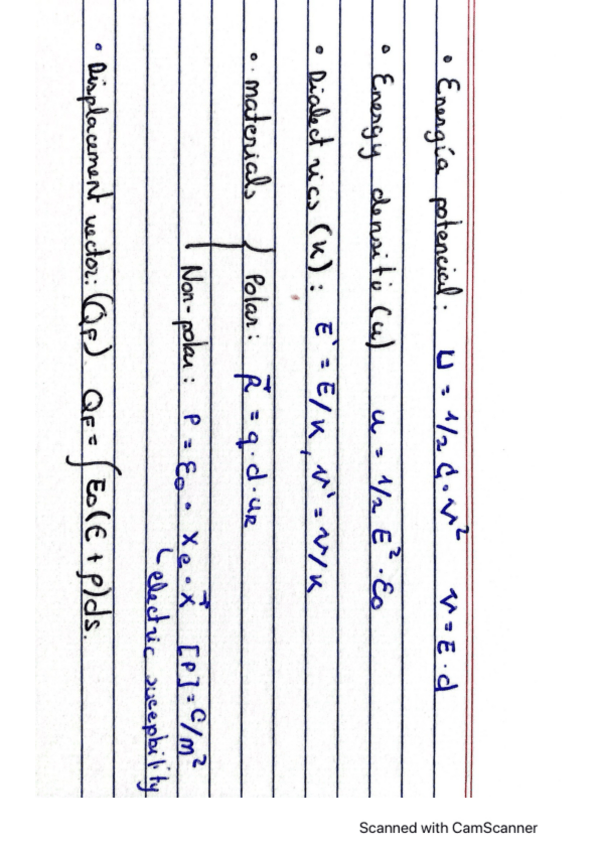 • Energía potencial: U = 1/2 C·V² V = E·d
• Energy density (u) u = 1/2 E²·ε₀
• Dialectrics (K): E' = E/K, V' = V/K
• materials { Polar: p⃗ = q·d·u_R
Non-polar: P = ε₀ · Xe · X⃗ [P] = C/m²
electric suceptbility
• Displacement vector: (QF) QF = ∫ E₀(E + P)ds.
Scanned with CamScanner